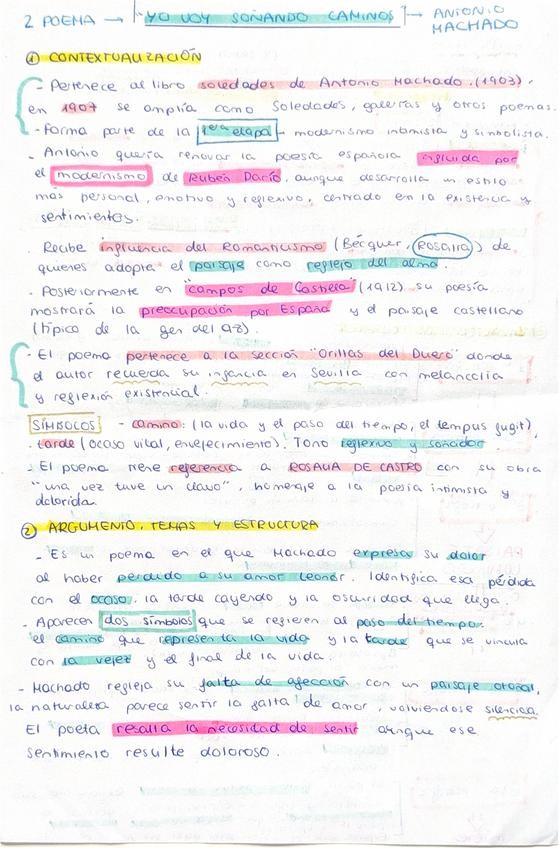 2 POEMA → "YO VOY SOÑANDO CAMINOS" → ANTONIO MACHADO
① CONTEXTUALIZACIÓN
- Pertenece al libro soledades de Antonio Machado. (1903),
en 1907 se amplía como Soledades, galerías y otros poemas.
- Forma parte de la 1era etapa - modernismo intimista y simbolista.
- Antonio quería renovar la poesía española influida por
el modernismo de Rubén Darío, aunque desarrolla un estilo
más personal, emotivo y reflexivo, centrado en la existencia y
sentimientos.
- Recibe influencia del Romanticismo (Bécquer, Rosalía) de
quienes adopta el paisaje como reflejo del alma.
- Posteriormente en "campos de Castilla" (1912) su poesía
mostrará la preocupación por España y el paisaje castellano
(típico de la gen del 98).
- El poema pertenece a la sección "Orillas del Duero" donde
el autor recuerda su infancia en Sevilla con melancolía
y reflexión existencial.
SÍMBOLOS - camino: (la vida y el paso del tiempo, el tempus fugit),
- tarde (ocaso vital, envejecimiento). Tono reflexivo y soñador.
- El poema tiene referencia a ROSALIA DE CASTRO con su obra
"una vez tuve un clavo", homenaje a la poesía intimista y
dolorida.
② ARGUMENTO, TEMAS Y ESTRUCTURA
- Es un poema en el que Machado expresa su dolor
al haber perdido a su amor Leonor. Identifica esa pérdida
con el ocaso, la tarde cayendo y la oscuridad que llega.
- Aparecen dos símbolos que se refieren al paso del tiempo:
el camino que representa la vida y la tarde que se vincula
con la vejez y el final de la vida.
- Machado refleja su falta de afección con un paisaje otoñal,
la naturaleza parece sentir la falta de amor, volviéndose silencios.
El poeta resalta la necesidad de sentir aunque ese
sentimiento resulte doloroso.